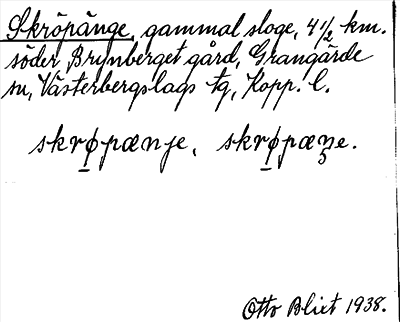 Skröpänge, gammal sloge, 4 1/2 km.
söder Brynberget gård, Grangärde
sn, Västerbergslags tg, Kopp. l.
skrø̲pænje, skrø̲pæŋe.
Otto Blixt 1938.